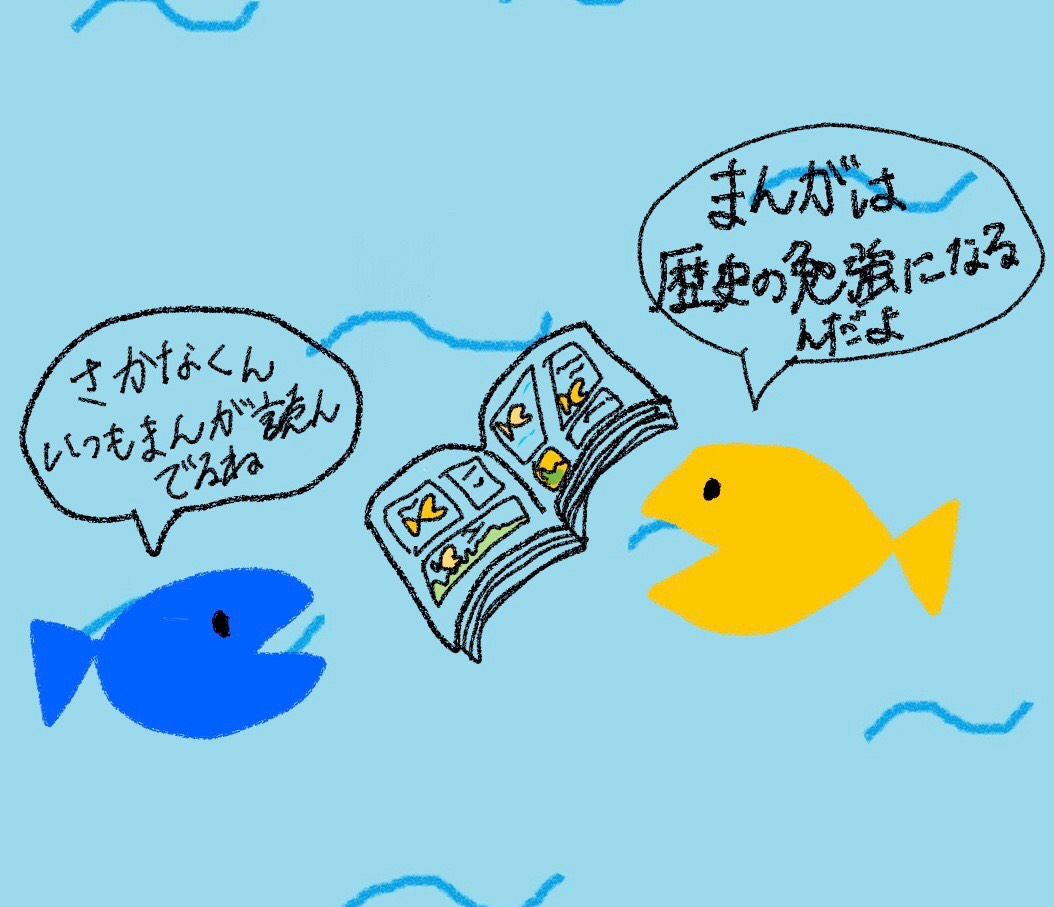 さかなくん
いつもまんが読ん
でるね
まんがは
歴史の勉強になる
んだよ